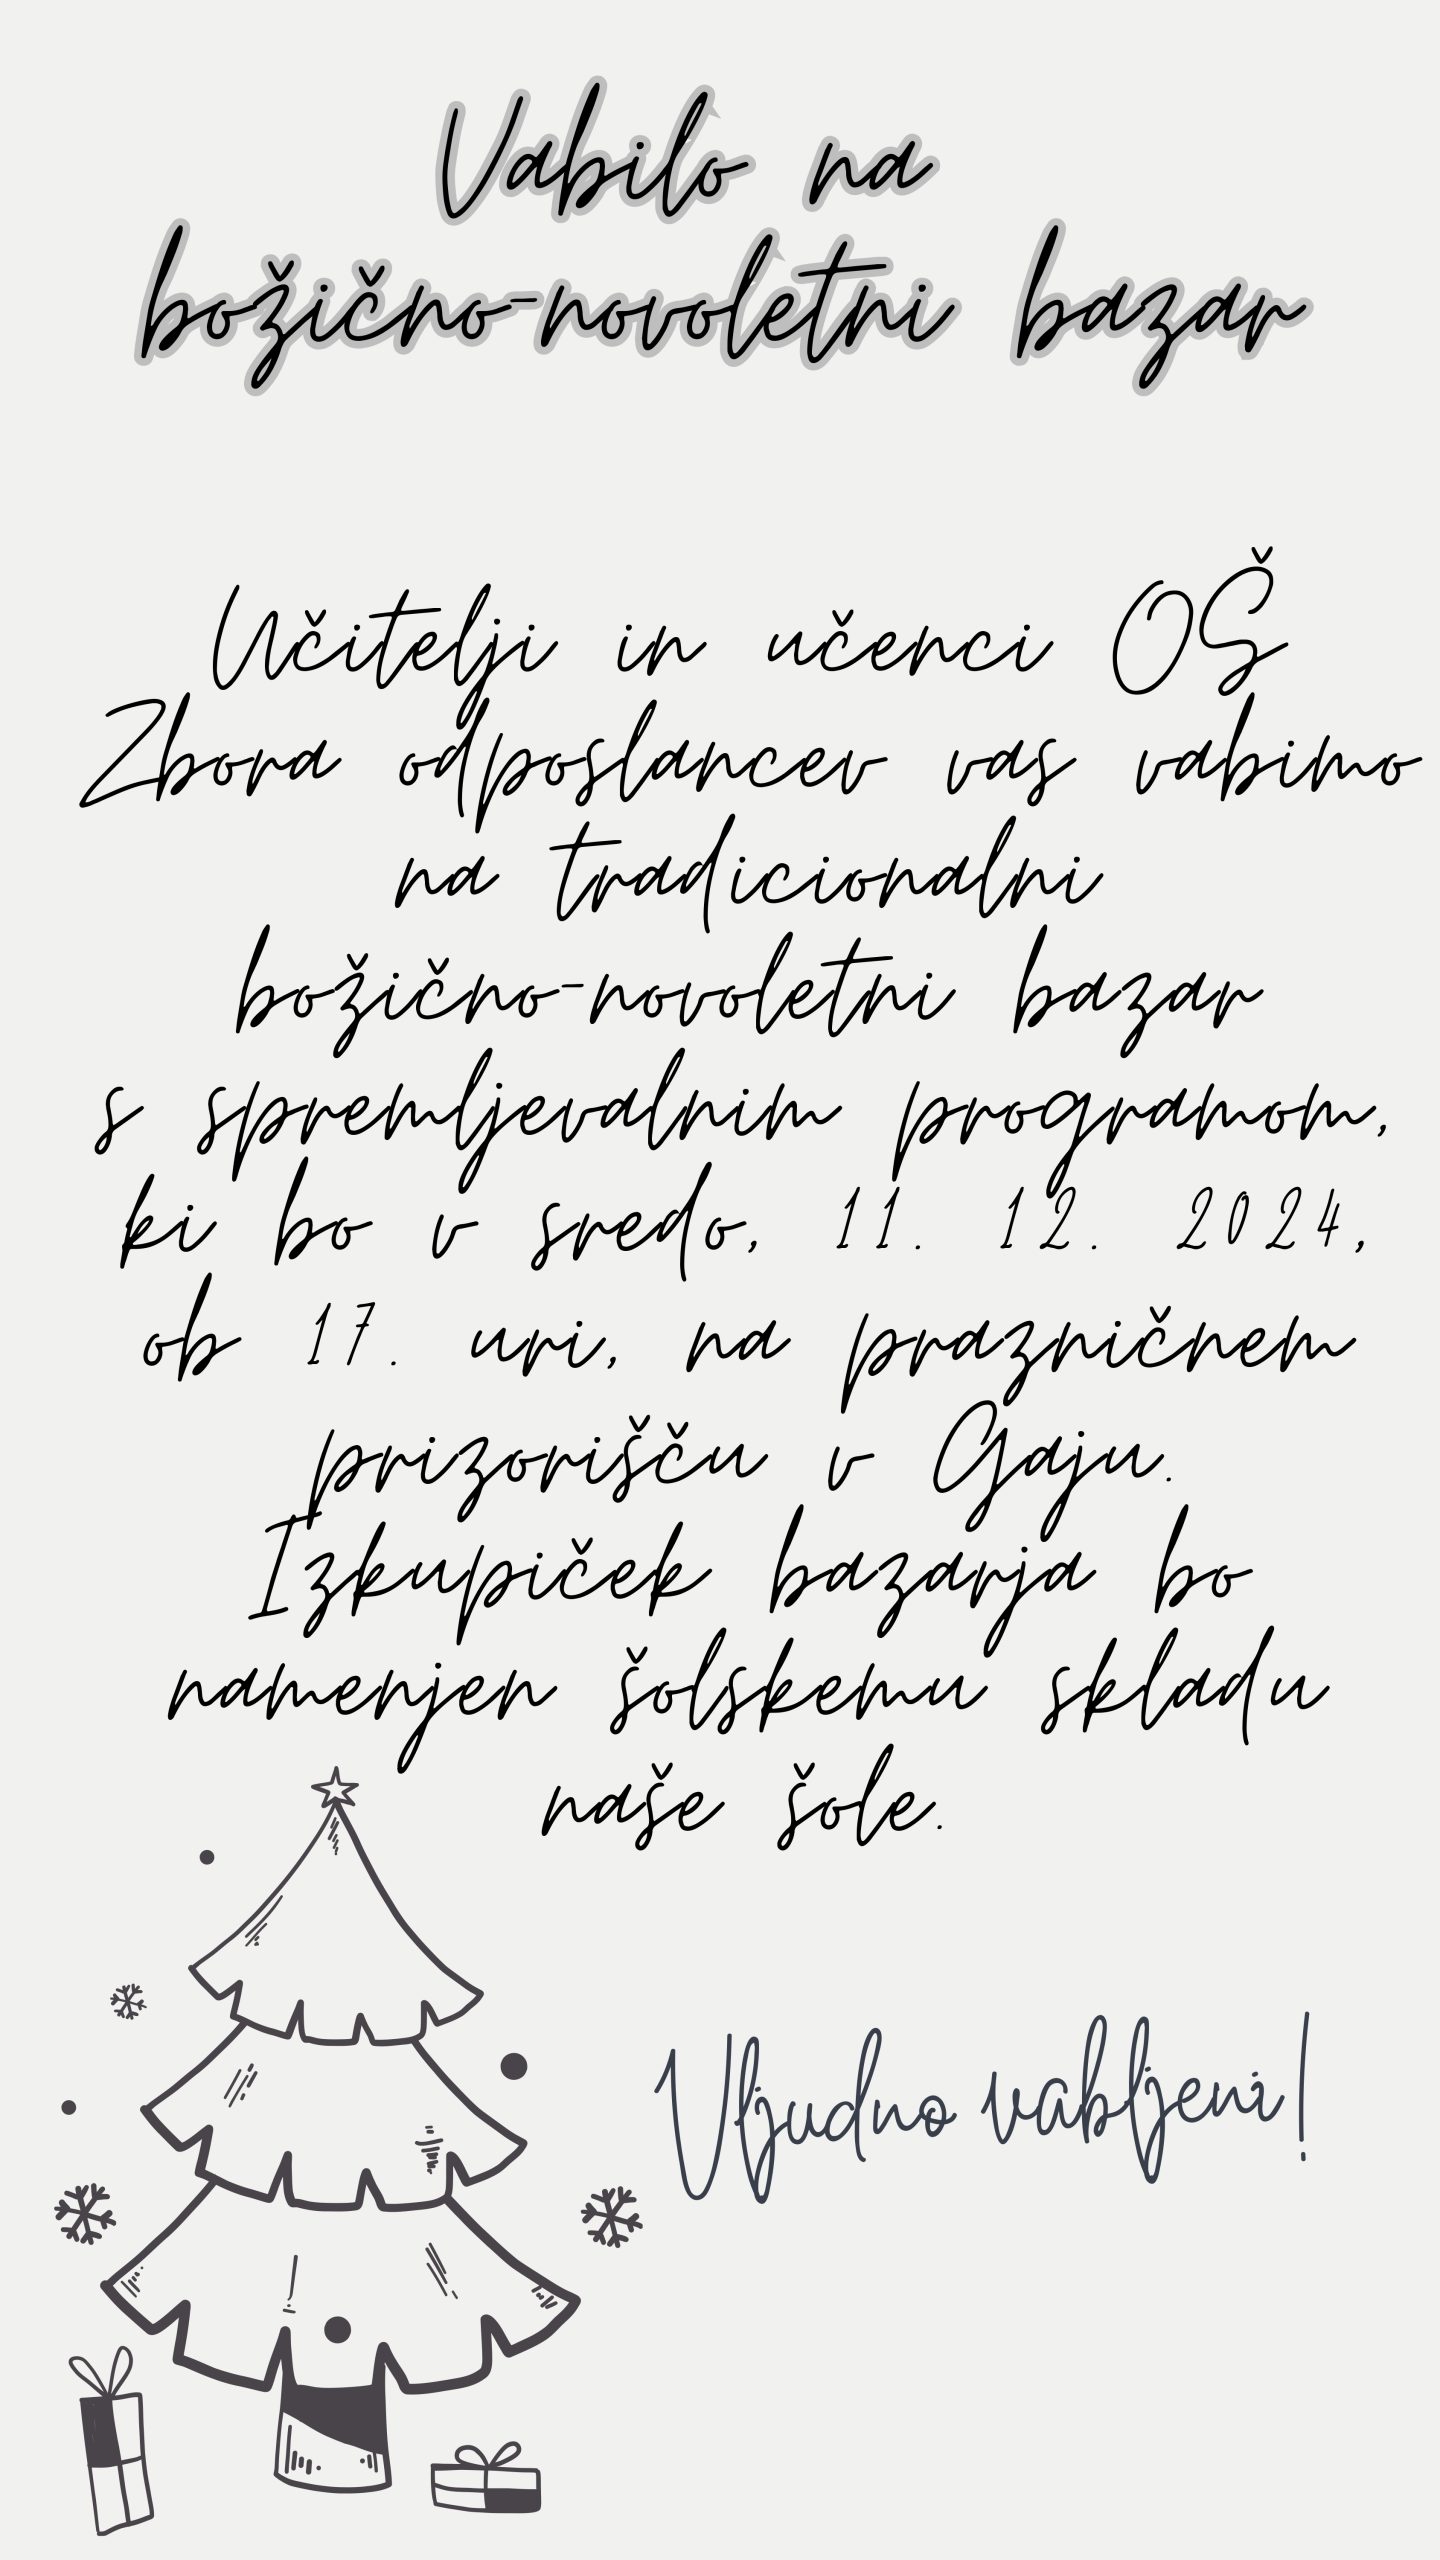 Vabilo na
božično-novoletni bazar
Učitelji in učenci OŠ
Zbora odposlancev vas vabimo
na tradicionalni
božično-novoletni bazar
s spremljevalnim programom,
ki bo v sredo, 11. 12. 2024,
ob 17. uri, na prazničnem
prizorišču v Gaju.
Izkupiček bazarja bo
namenjen šolskemu skladu
naše šole.
Vljudno vabljeni!